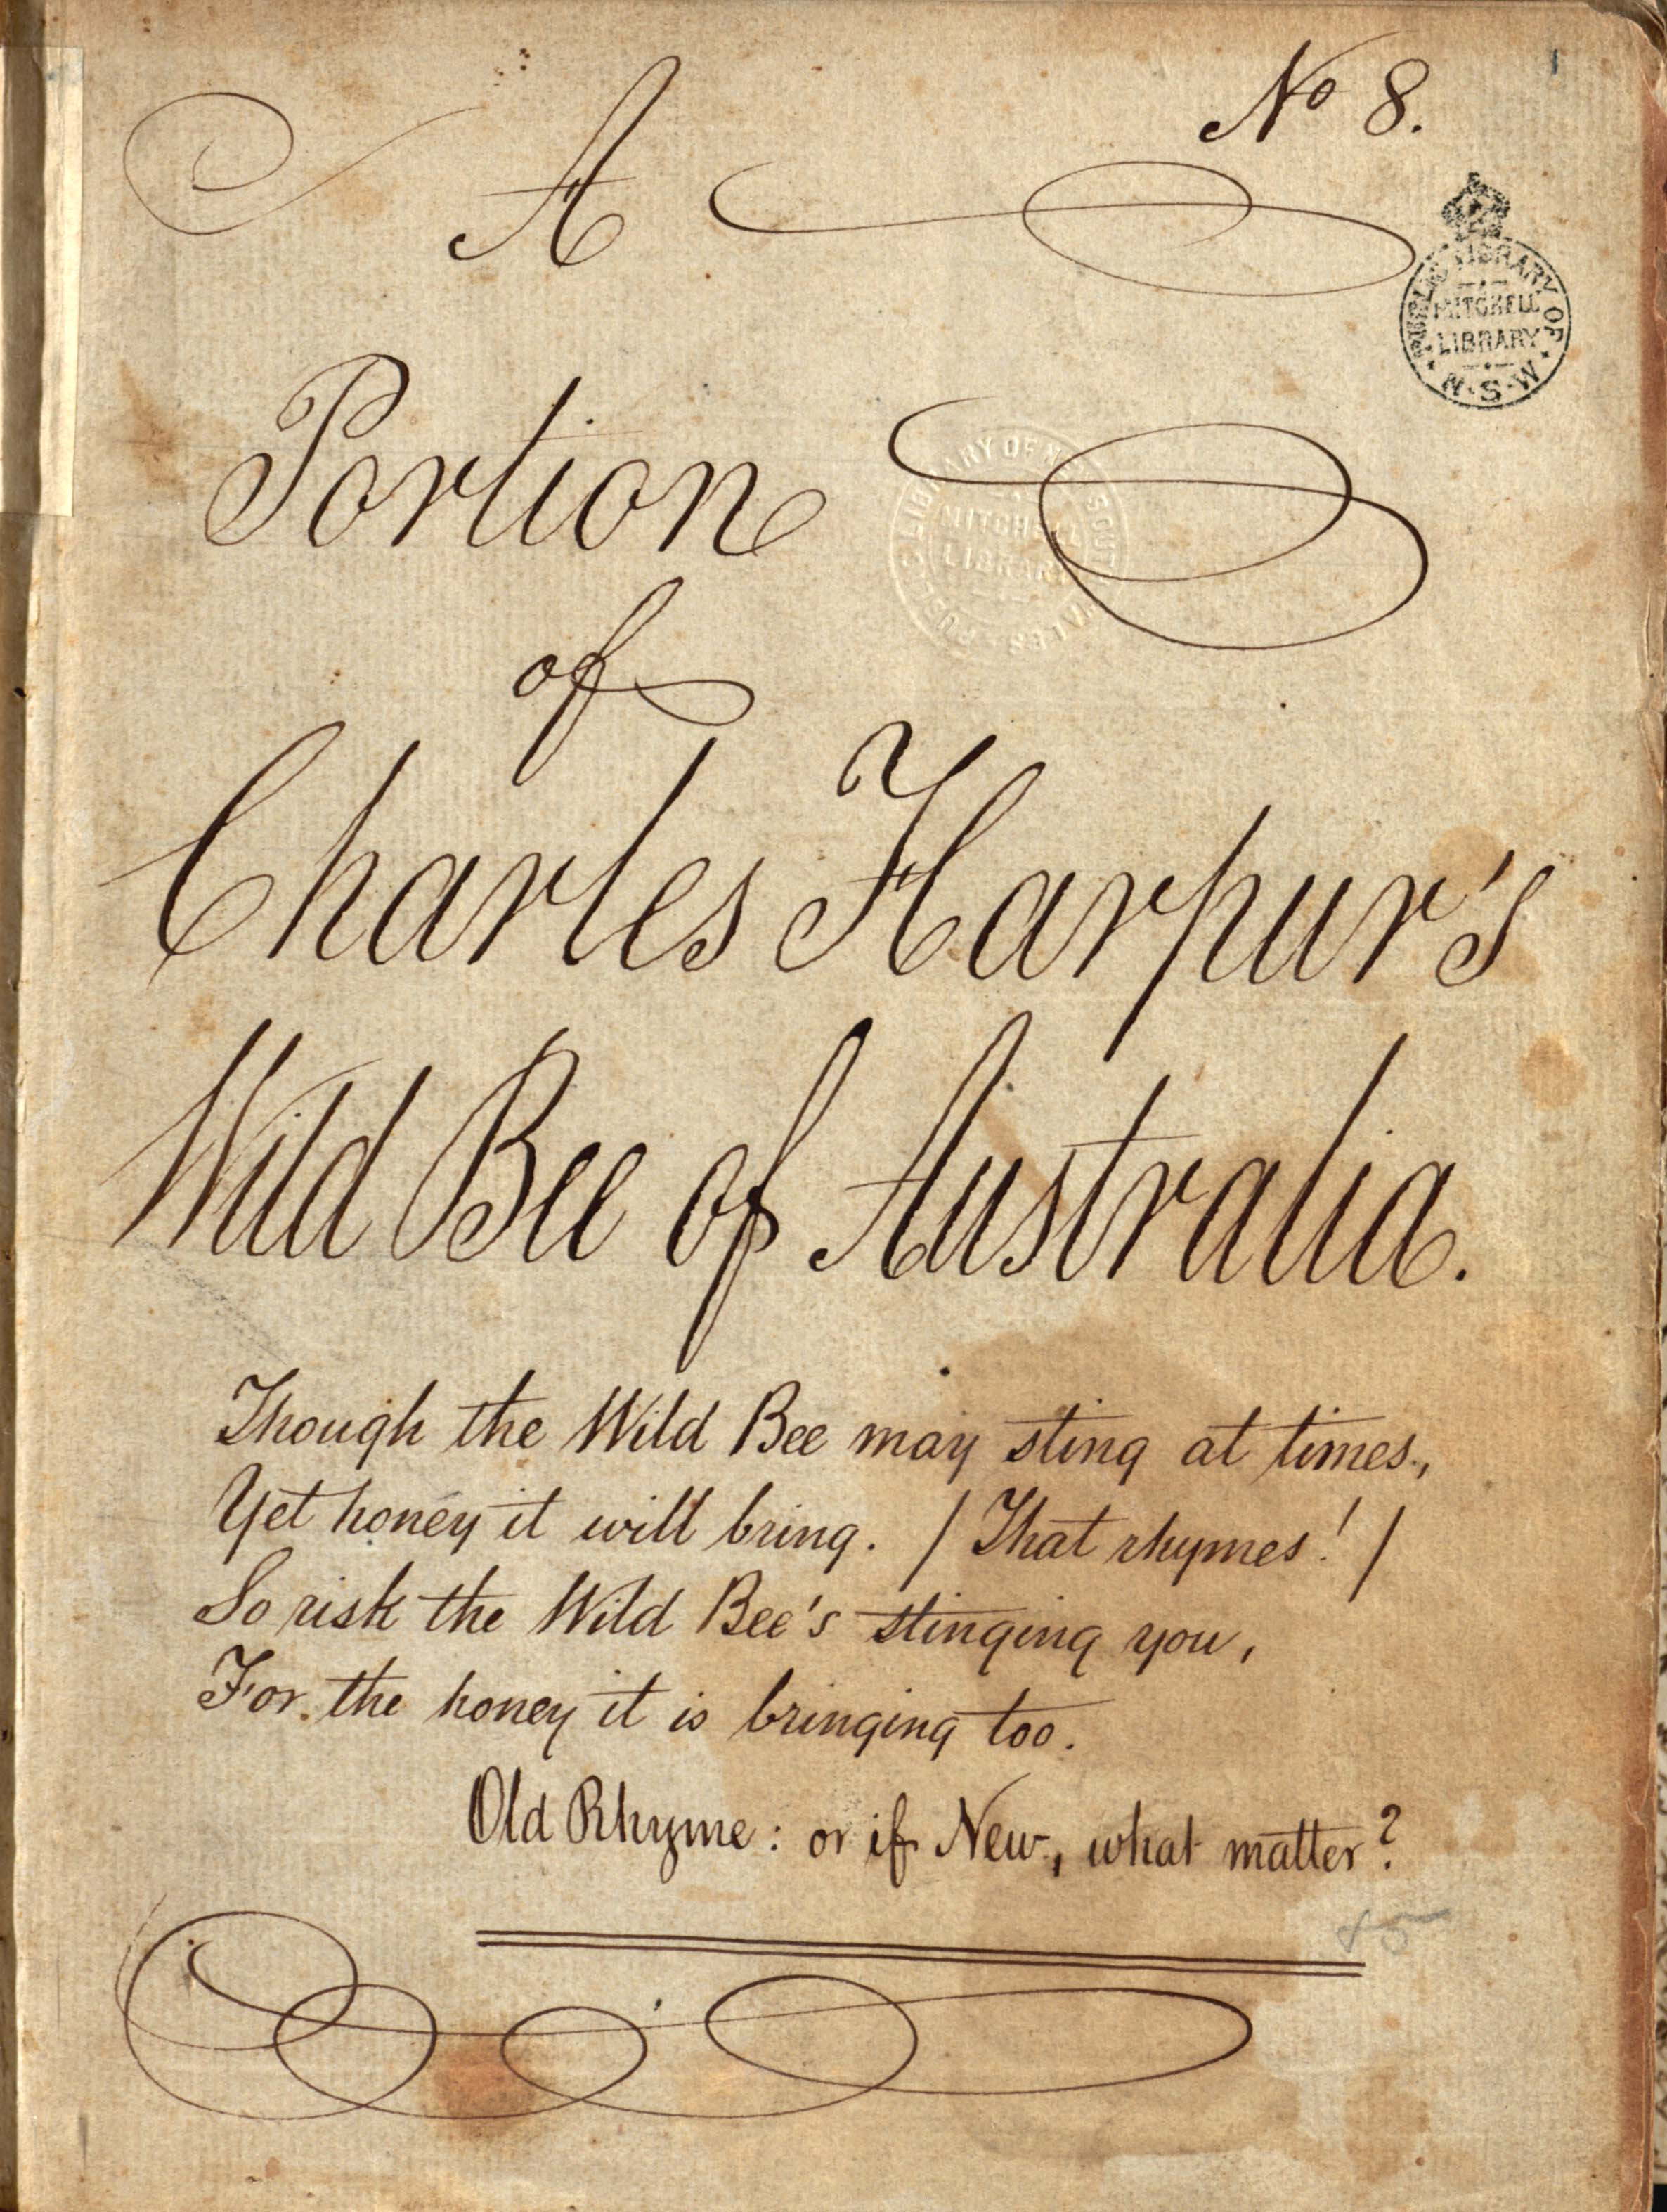 1
No 8.
A
PUBLIC LIBRARY OF
MITCHELL
LIBRARY
N.S.W.
Portion
PUBLIC LIBRARY OF NEW SOUTH WALES
MITCHELL
LIBRARY
of
Charles Harpur's
Wild Bee of Australia.
Though the Wild Bee may sting at times,
Yet honey it will bring. / That rhymes! /
So risk the Wild Bee's stinging you,
For the honey it is bringing too.
Old Rhyme: or if New, what matter?